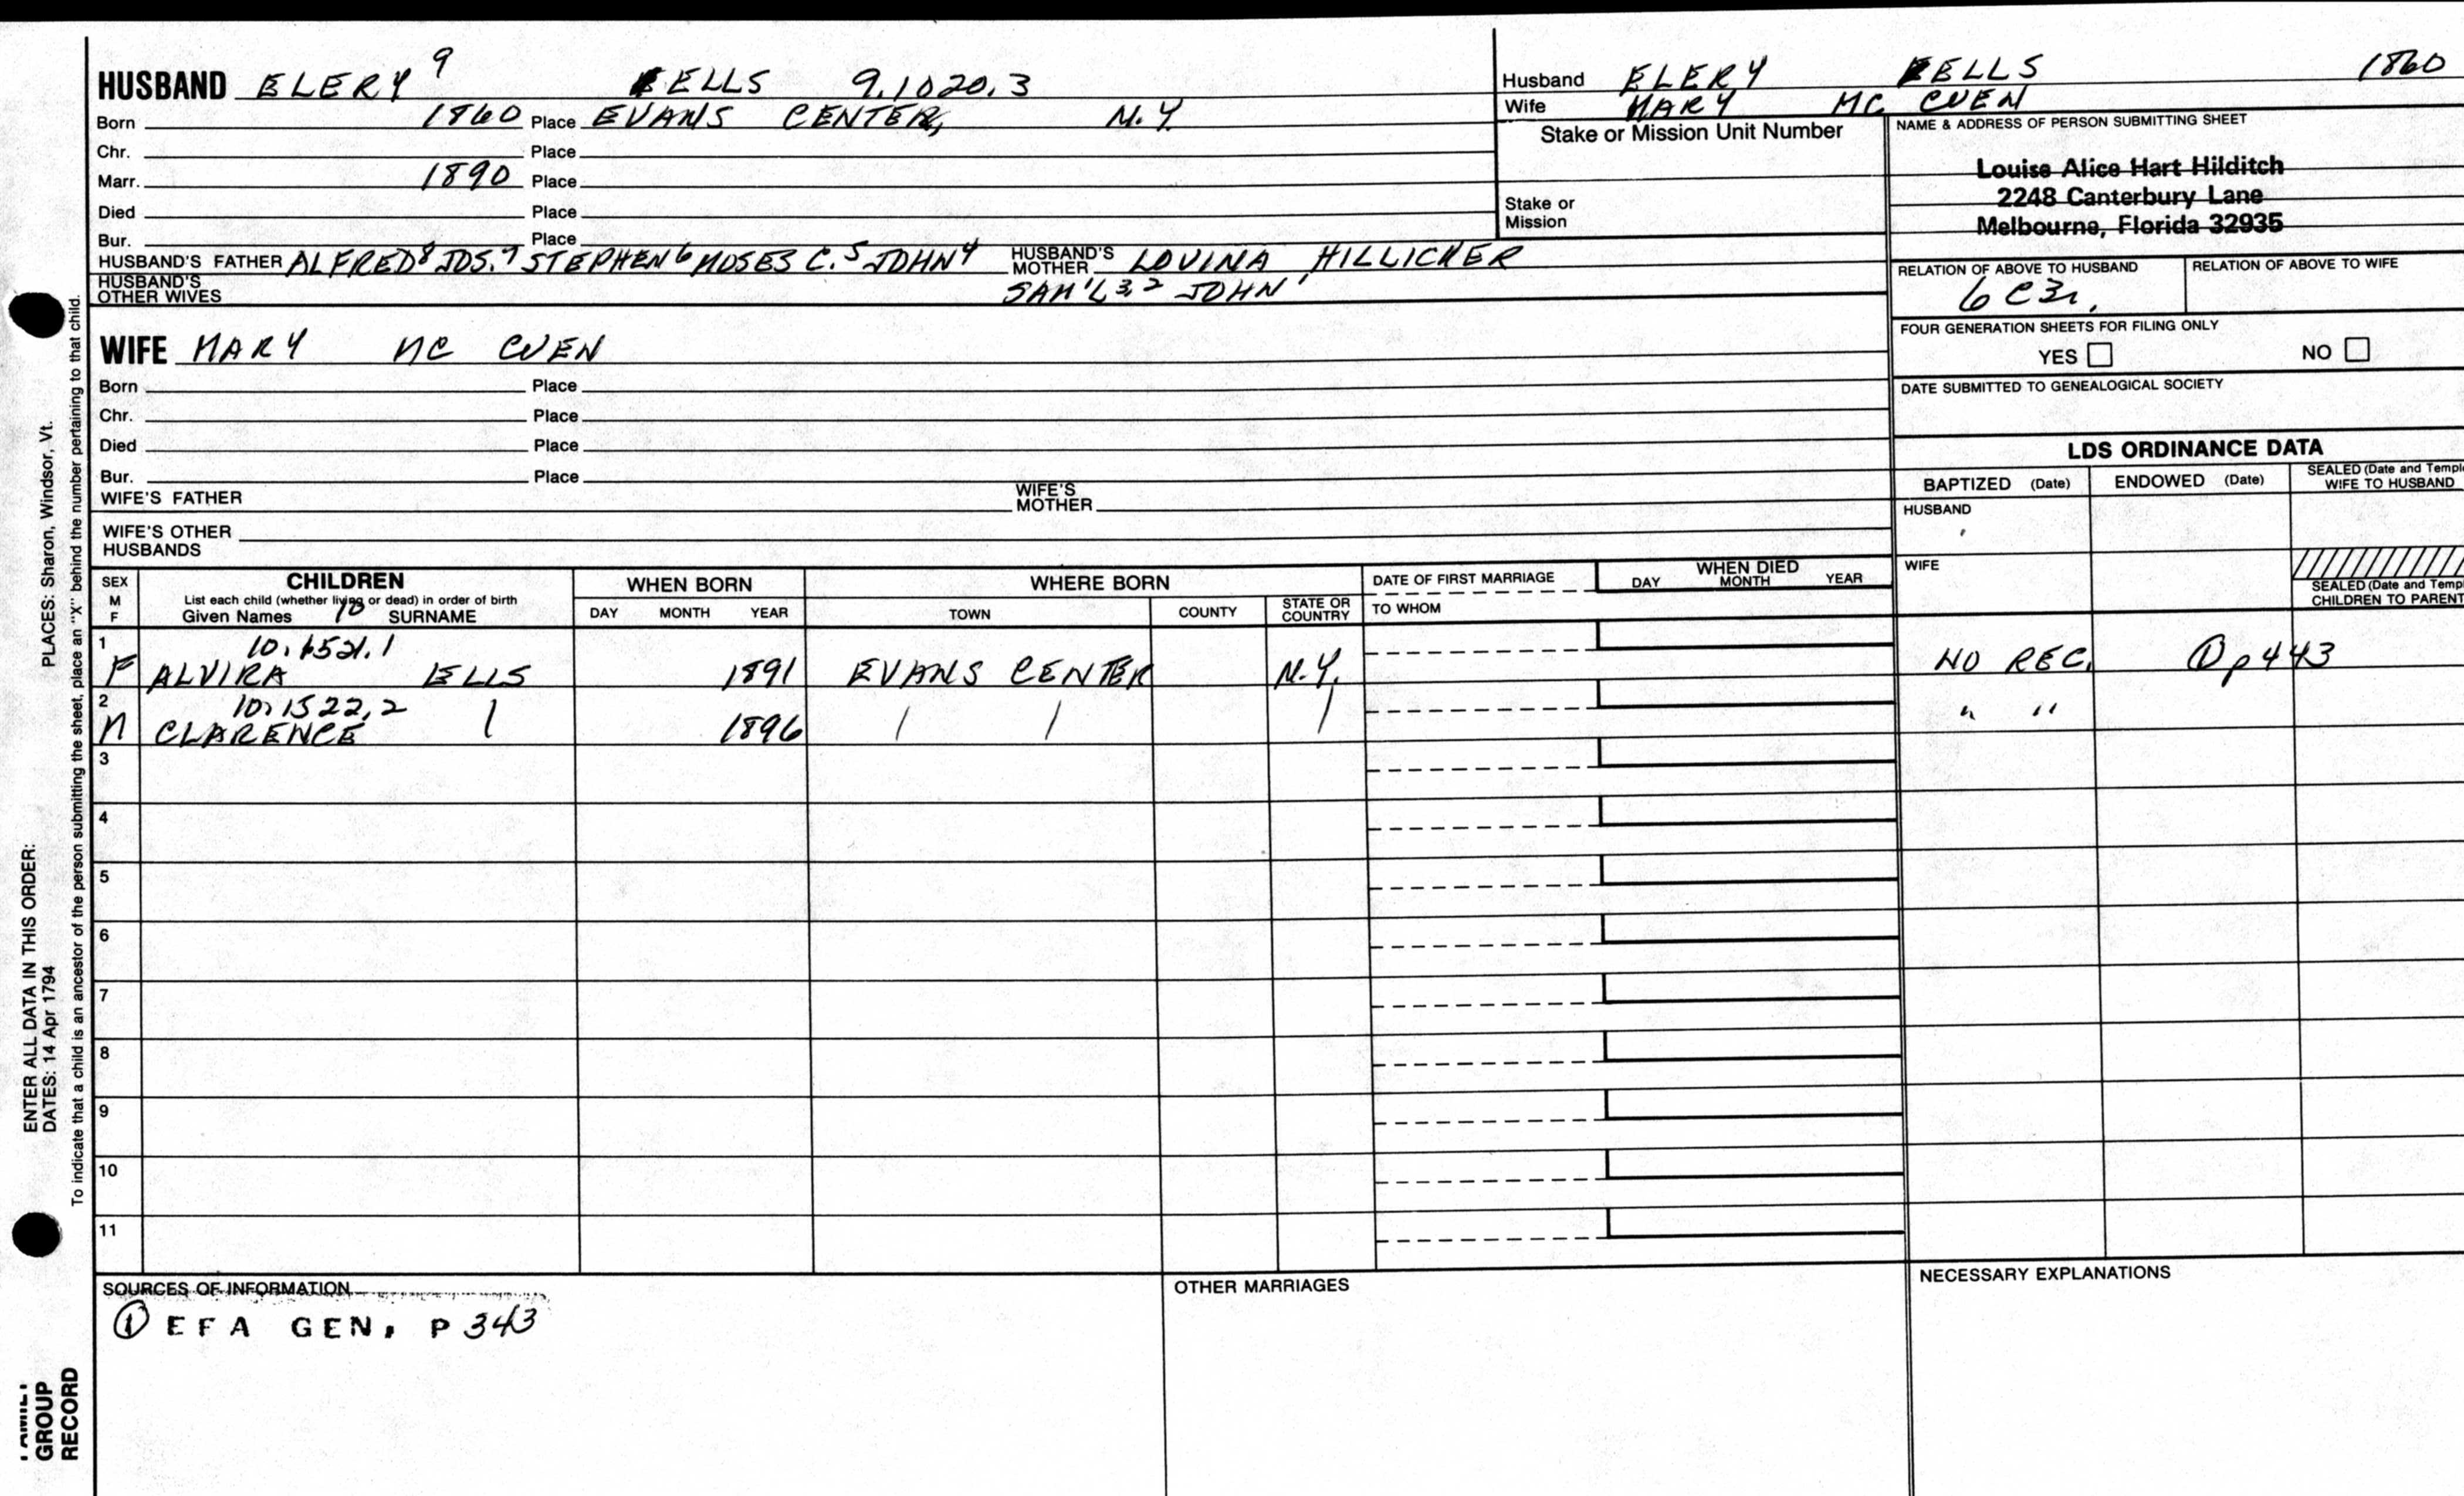 HUSBAND ELERY 9 EELLS 9.1020.3
Born 1860 Place EVANS CENTER, N.Y.
Chr. Place
Marr. 1890 Place
Died Place
Bur. Place
HUSBAND'S FATHER ALFRED 8 JOS. 7 STEPHEN 6 MOSES C. 5 JOHN 4 HUSBAND'S MOTHER LOVINA HILLICKER
HUSBAND'S OTHER WIVES SAM'L 3,2 JOHN 1
WIFE MARY MC CUEN
Born Place
Chr. Place
Died Place
Bur. Place
WIFE'S FATHER WIFE'S MOTHER
WIFE'S OTHER HUSBANDS
Husband ELERY EELLS 1860
Wife MARY MC CUEN
Stake or Mission Unit Number
Stake or
Mission
NAME & ADDRESS OF PERSON SUBMITTING SHEET
Louise Alice Hart Hilditch
2248 Canterbury Lane
Melbourne, Florida 32935
RELATION OF ABOVE TO HUSBAND RELATION OF ABOVE TO WIFE
FOUR GENERATION SHEETS FOR FILING ONLY
YES NO
DATE SUBMITTED TO GENEALOGICAL SOCIETY
LDS ORDINANCE DATA
BAPTIZED (Date) ENDOWED (Date) SEALED (Date and Temple WIFE TO HUSBAND
HUSBAND
WIFE
SEALED (Date and Templ
CHILDREN TO PARENT
SEX M F CHILDREN WHEN BORN WHERE BORN DATE OF FIRST MARRIAGE WHEN DIED
List each child (whether living or dead) in order of birth
Given Names 10 SURNAME DAY MONTH YEAR TOWN COUNTY STATE OR COUNTRY TO WHOM DAY MONTH YEAR
1
F ALVIRA EELLS 1891 EVANS CENTER N.Y. NO REC. ① p443
2 10.1522.2
M CLARENCE 1896 " "
3
4
5
6
7
8
9
10
11
SOURCES OF INFORMATION
① EFA GEN, P 343
OTHER MARRIAGES
NECESSARY EXPLANATIONS
ENTER ALL DATA IN THIS ORDER:
DATES: 14 Apr 1794 PLACES: Sharon, Windsor, Vt.
To indicate that a child is an ancestor of the person submitting the sheet, place an "X" behind the number pertaining to that child.
FAMILY
GROUP
RECORD